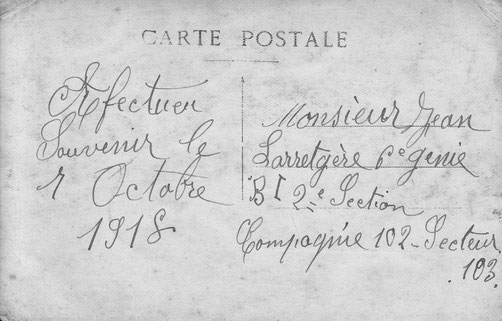 CARTE POSTALE
Afectueu
Souvenir le
1 Octobre
1918
Monsieur Jean
Larretgère 6e genie
BI 2e Section
Compagnie 102-Secteur
.103.